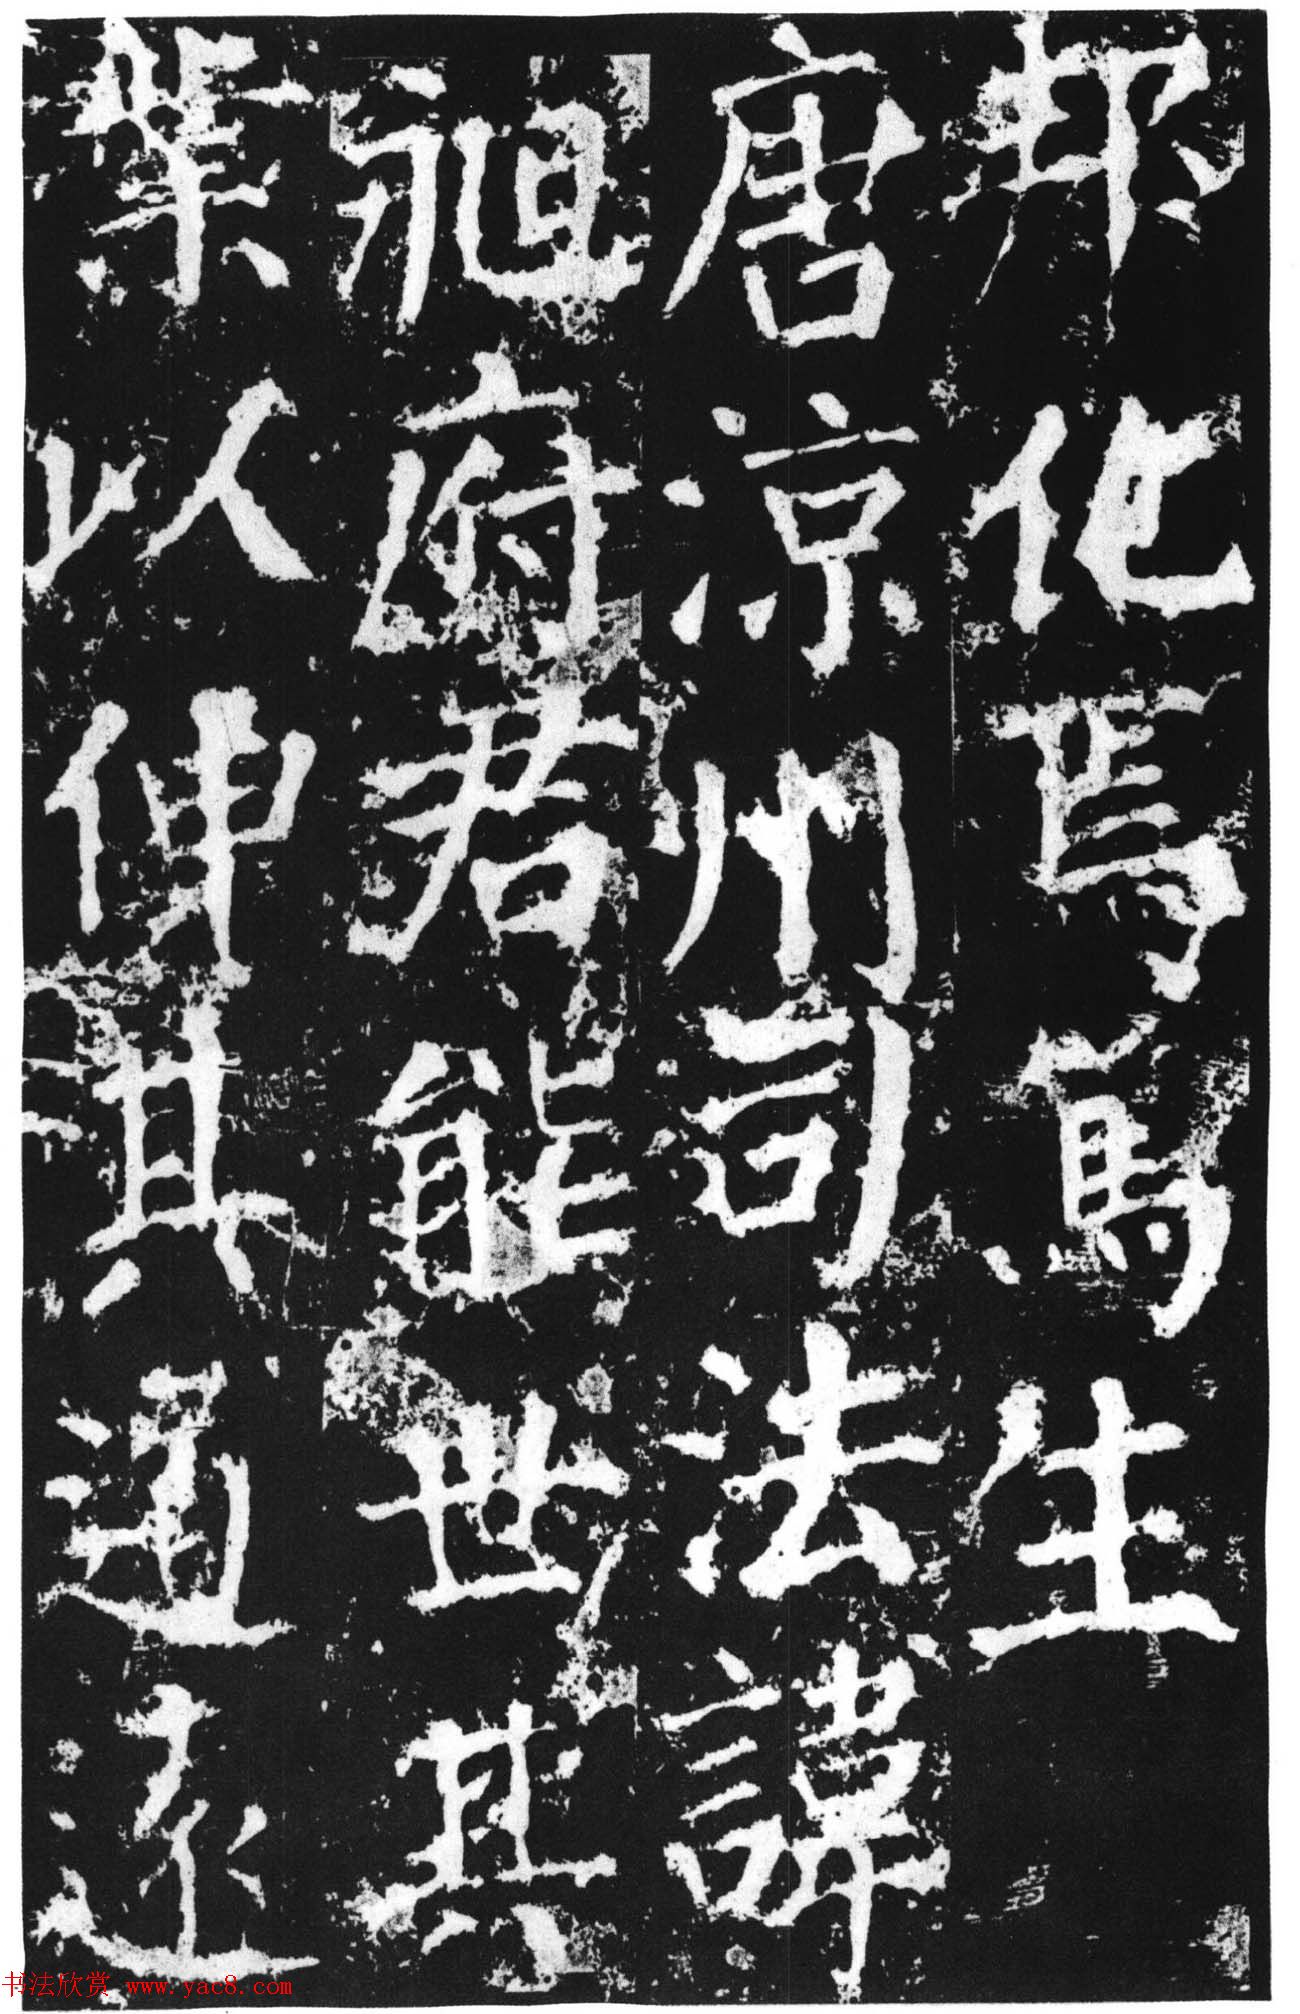 邦化焉篤生
唐涼州司法諱
昶府君能世其
業以伸其通遠
书法欣赏 www.yac8.com